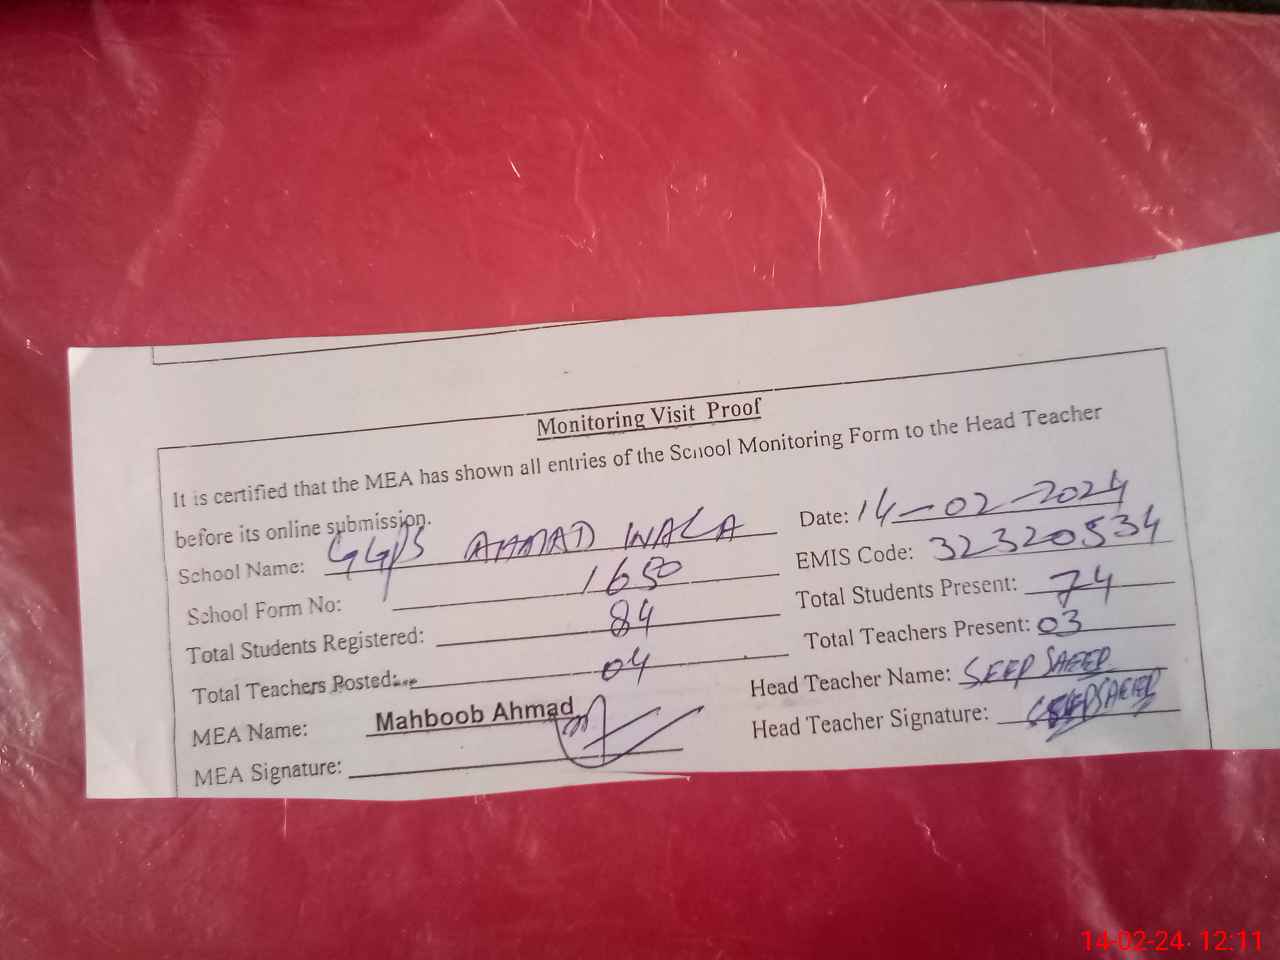 Monitoring Visit Proof
It is certified that the MEA has shown all entries of the School Monitoring Form to the Head Teacher
before its online submission.
School Name: GGPS AHMAD WALA Date: 14-02-2024
School Form No: 1650 EMIS Code: 32320534
Total Students Registered: 84 Total Students Present: 74
Total Teachers Posted: 04 Total Teachers Present: 03
MEA Name: Mahboob Ahmad Head Teacher Name: SEEP SAEED
MEA Signature: Head Teacher Signature:
14-02-24 12:11